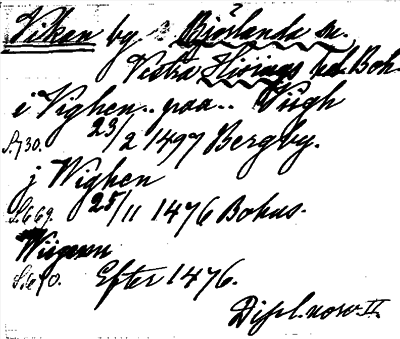 ?
Viken by. Björlanda sn.
Vestra Hisings hd. Boh.
i Vighen.. paa.. Viigh
S.730. 23/2 1497 Bergby.
j Wighen
S.669. 25/11 1476 Bohus.
Wiigenn
S.670. Efter 1476.
Dipl. norv. II.